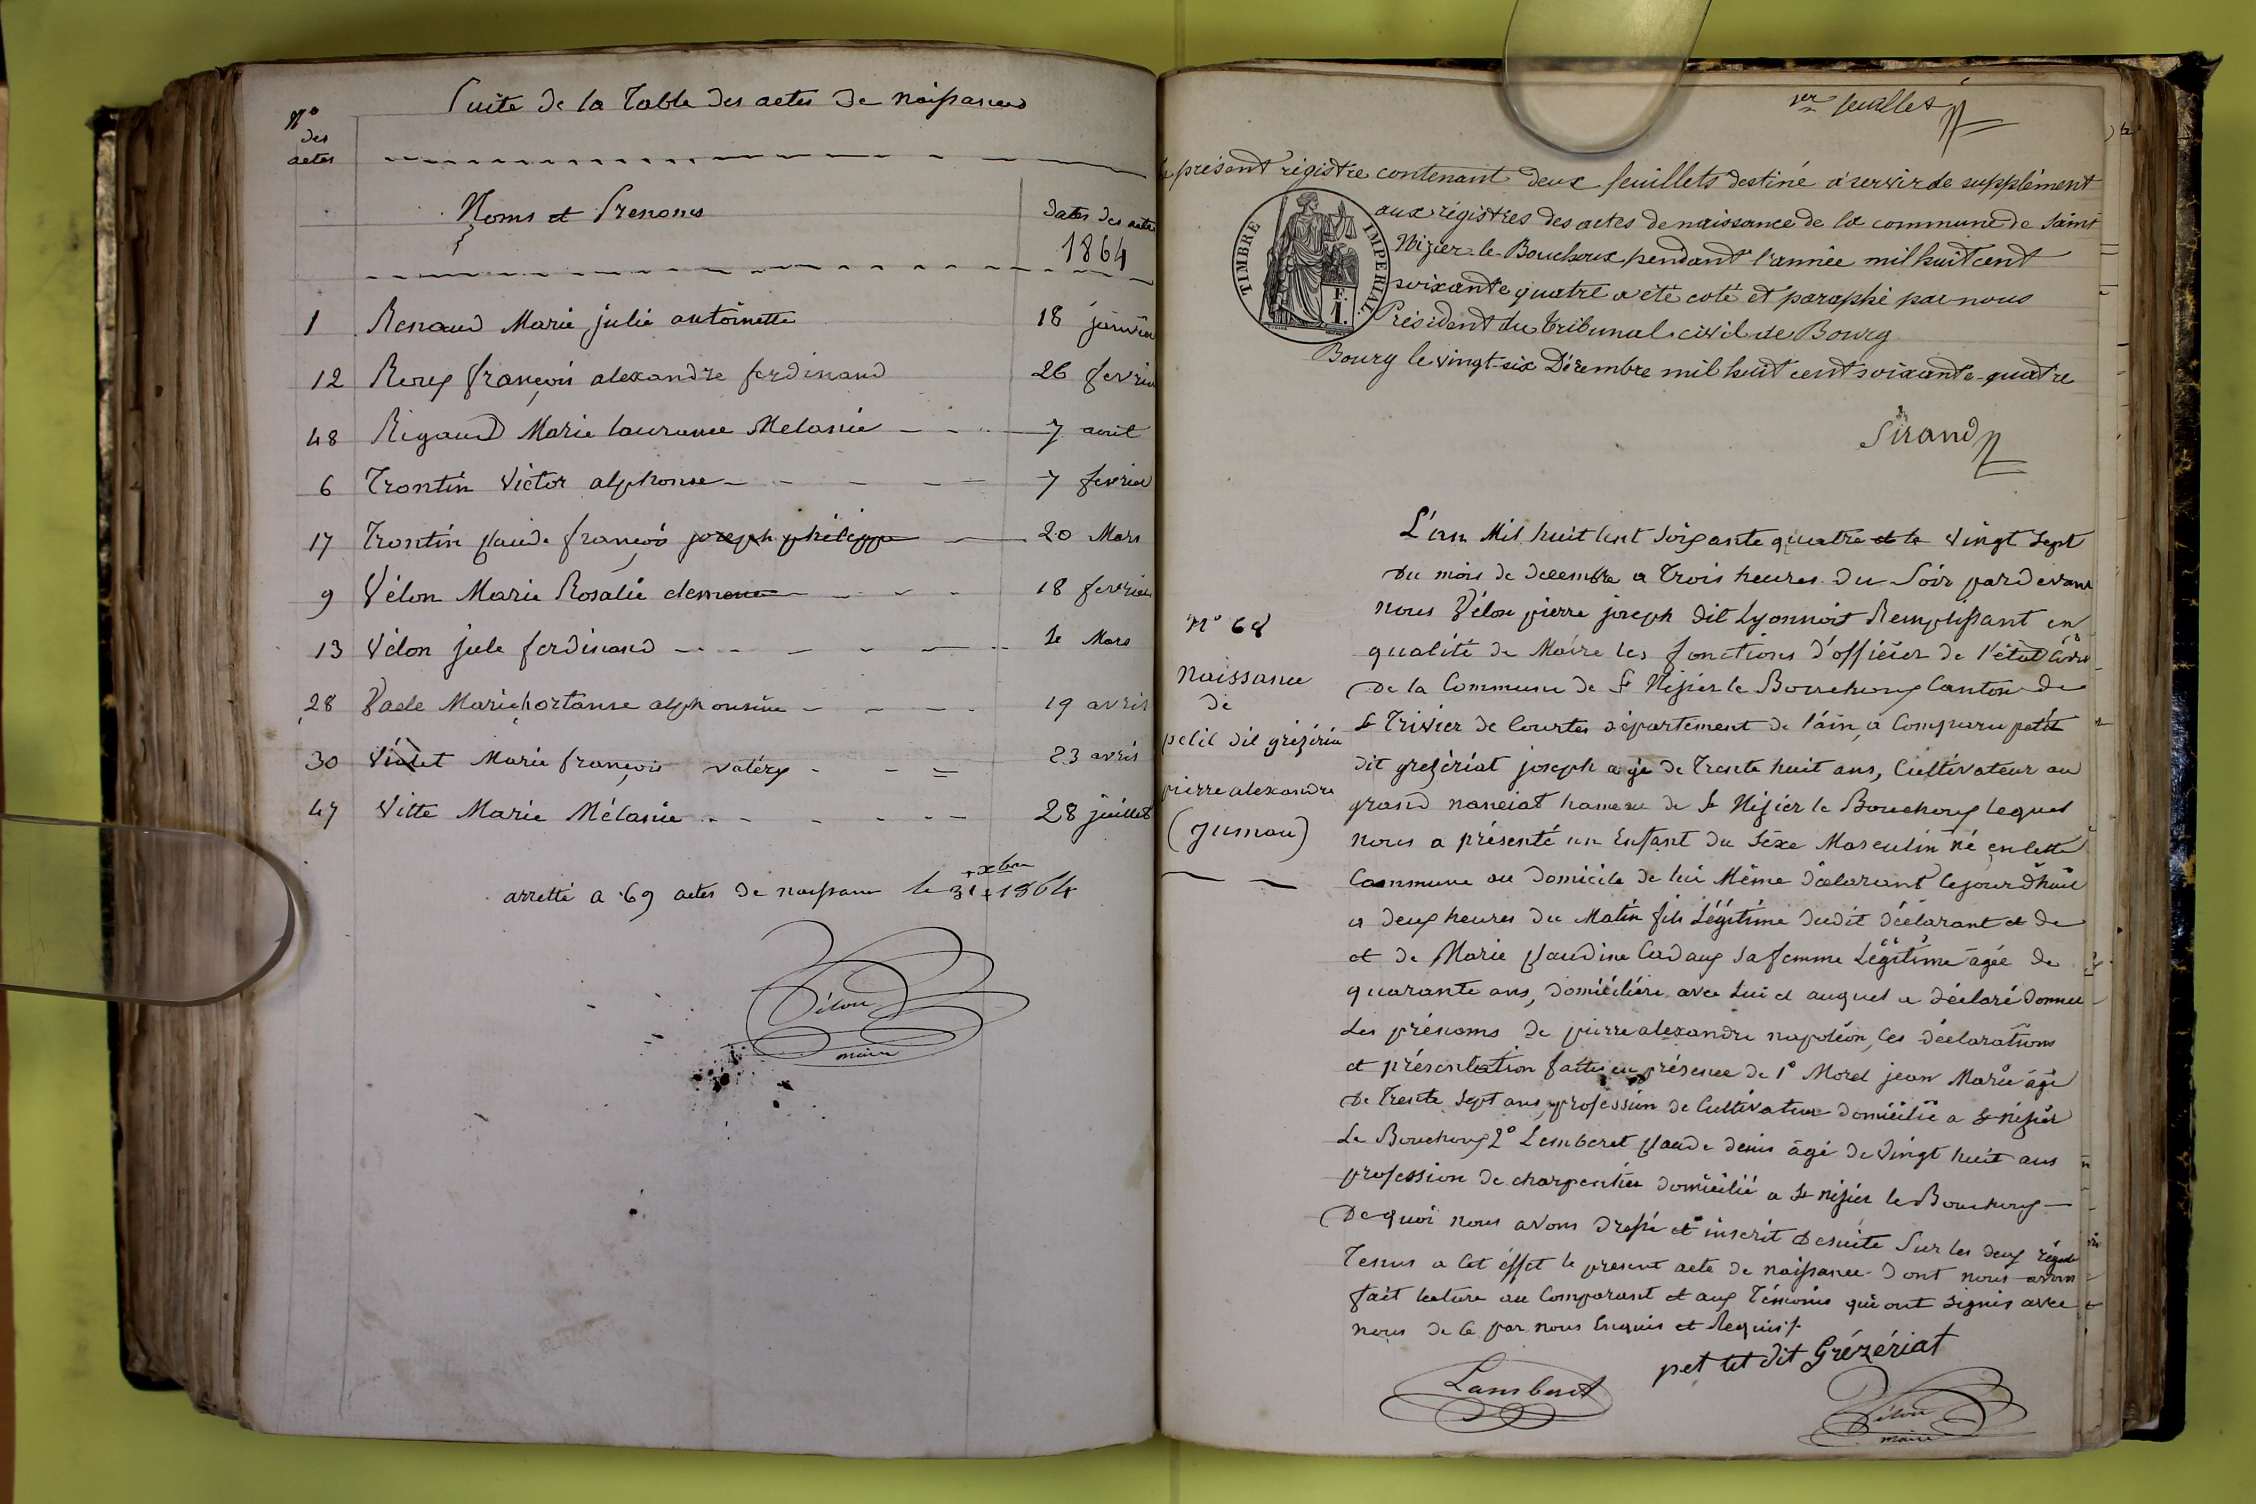 Suite de la Table des actes de naissances
N°
des
actes
Noms et Prenoms
dates des actes
1864
1 Renaud Marie julie antoinette 18 janvier
12 Roux françois alexandre ferdinand 26 fevrier
48 Rigaud Marie laurence Melanie 7 août
6 Trontin Victor alphonse 7 fevrier
17 Trontin claude françois joseph philippe 20 Mars
9 Vélon Marie Rosalie 18 fevrier
13 Vélon jule ferdinand Mars
28 Marie hortanse alphonsine 19 avril
30 Violet Marie françois valéry 23 avril
47 Vitte Marie Mélanie 28 juillet
arretté a 69 actes de naissance le 31 xbre 1864
Vélon
maire
1er feuillet
le présent régistre contenant deux feuillets destiné à servir de supplément
aux régistres des actes de naissance de la commune de Saint
Nizier-le-Bouchoux pendant l'année mil huit cent
soixante quatre a été coté et paraphé par nous
Président du tribunal civil de Bourg
Bourg le vingt-six Décembre mil huit cent soixante-quatre
TIMBRE IMPERIAL
F.
1.
Sirand
N° 68
Naissance
de
petit dit grézéria
pierre alexandre
(jumau)
L'an Mil huit Cent Soixante quatre et le Vingt Sept
du mois de decembre a Trois heures du Soir pardevant
nous Vélon pierre joseph dit Lyonnoit Remplissant en
qualité de Maire les fonctions d'officier de l'état Civil
de la Commune de St Nizier le Bouchoux Canton de
St Trivier de Courtes département de l'ain, a Comparu petit
dit grezériat joseph agé de Trente huit ans, Cultivateur au
grand nanciat hameau de St Nizier le Bouchoux lequel
nous a présenté un Enfant du Sexe Masculin né en cette
Commune au domicile de lui Même déclarant cejourd'huit
a deux heures du Matin fils Légitime dudit déclarant et de
et de Marie claudine Cadaux sa femme Légitime âgée de
quarante ans, domiciliée avec Lui et auquel a déclaré donner
Les prénoms de pierre alexandre napoléon, Ces déclarations
et présentation faites en présence de 1° Morel jean Marie âgé
De Trente Sept ans, profession de Cultivateur domicilié a St nizier
Le Bouchoux 2° Lemberet claude denis âgé de Vingt huit ans
profession de charpentier domicilié a St nizier le Bouchoux
De quoi nous avons dressé et inscrit desuite Sur les deux régistres
Tenus a Cet éffet le présent acte de naissance dont nous avons
fait lecture au Comparant et aux Témoins qui ont signés avec
nous de Ce par nous Enquis et Requis
petit dit Grézériat
Lamberet
Vélon
maire